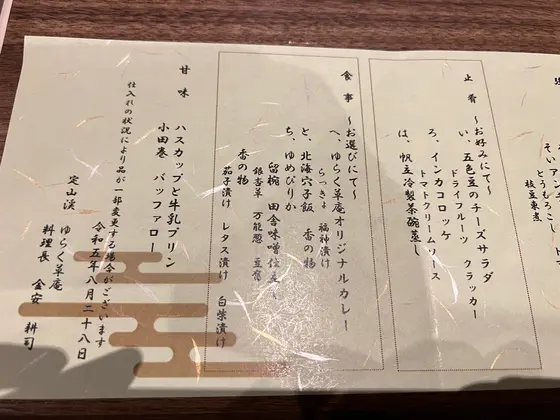 そいアン
とうもろこし ト
枝豆東煮
止肴 ～お好みにて～
い、五色豆のチーズサラダ
ドライフルーツ クラッカー
ろ、インカコロッケ
トマトクリームソース
は、帆立冷製茶碗蒸し
食事 ～お選びにて～
へ、ゆらく草庵オリジナルカレー
らっきょ 福神漬け
と、北海穴子飯 香の物
ち、ゆめぴりか
留椀 田舎味噌仕立し
銀杏草 万能葱 豆腐
香の物
茄子漬け レタス漬け 白菜漬け
甘味 ハスカップと牛乳プリン
小田巻 バッファロー
仕入れの状況により品が一部変更する場合がございます
令和五年八月二十八日
定山渓 ゆらく草庵
料理長 金安 耕司